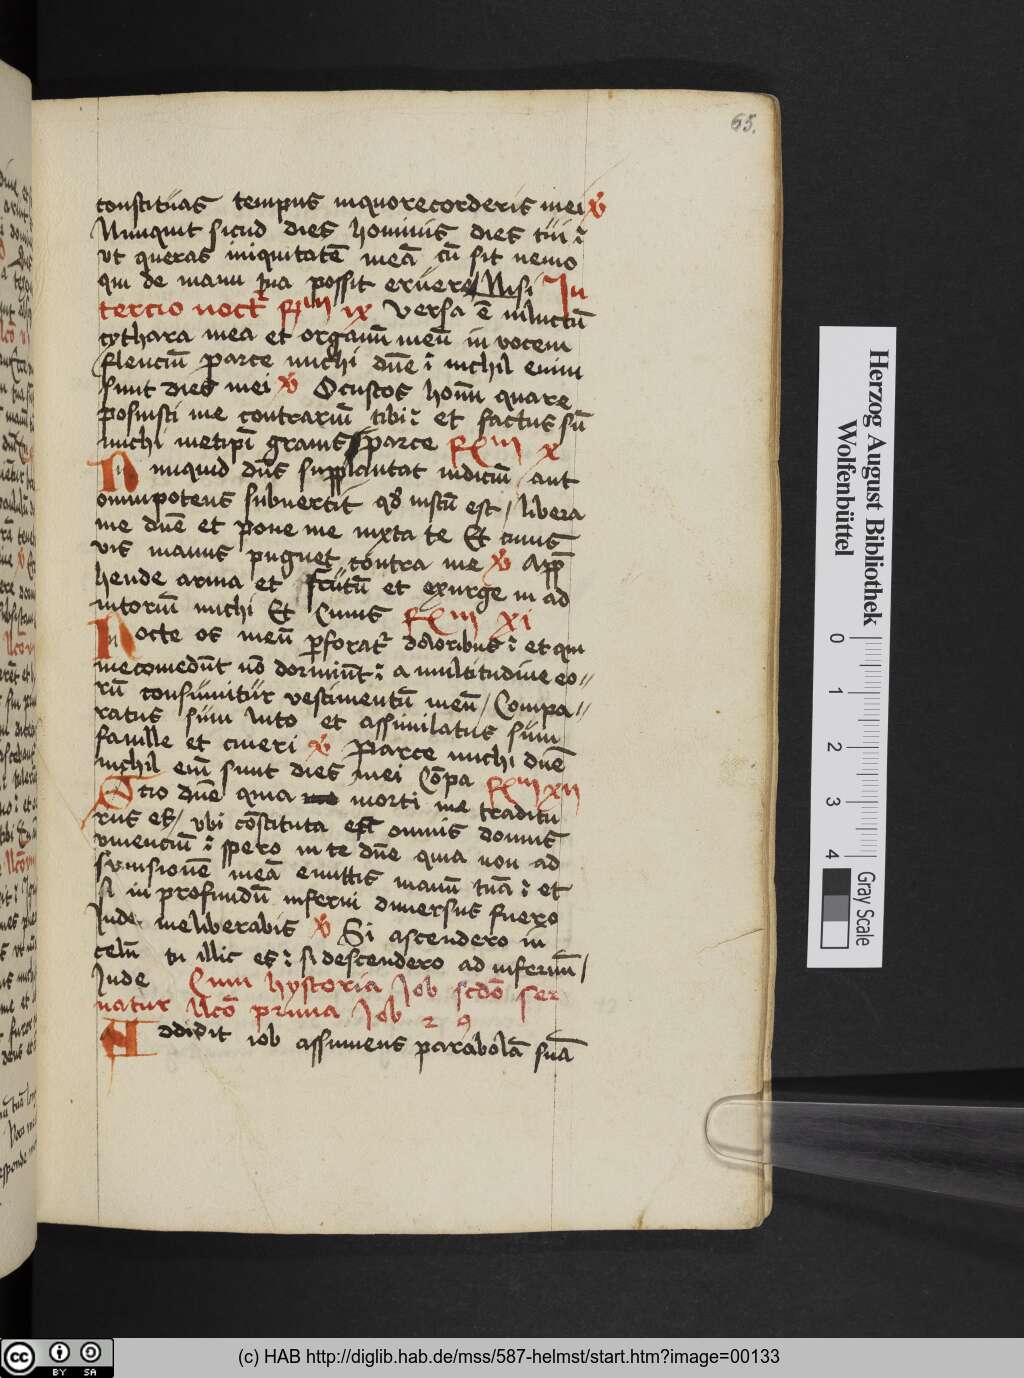 65.
constituas tempus inquorecorderis mei ℣
Nunquit sicud dies hominis dies tui :
ut queras iniquitatē meā cū sit nemo
qui de manu tua possit eruere Nisi In
tercio noctꝛ Rm ix Versa ē inluctū
cythara mea et organū meū in vocem
flenciū parce michi dn̄e : nichil enim
sunt dies mei ℣ O custos homīn quare
posuisti me contrariū tibi : et factus sū
michi metipī grauis parce Rm x
Nunquid dn̄s supplantat iudiciū aut
omnipotens subuertit qd iustū est / libera
me dn̄e et pone me iuxta te Et cuius
vis manus pugnet contra me ℣ App
hende arma et scutū et exurge in ad
iutoriū michi Et Cuius Rm xi
Nocte os meū pforatꝛ doloribus : et qui
mecomedūt nō dormiūt : a multitudine eo〃
rū consumitur vestimentū meū / Compa〃
ratus sum luto et assimilatus sum
fauille et cineri ℣ Parce michi dn̄e
nichil eim sunt dies mei Cōpa Rm xii
Scio dn̄e quia morti me traditu
rus es / vbi cōstituta est omnis domus
viuenciū : spero in te dn̄e quia non ad
meā emittis manū tuā : et
si in profundū inferni dimersus fuero
Inde meliberabis ℣ Si ascendero in
celū tu illic es : si descendero ad infernū /
Inde Cum hystoria Iob scdō ser
uatur llcō prima Iob 29
Addidit iob assumens parabolā suā
Herzog August Bibliothek
Wolfenbüttel
0 1 2 3 4
Gray Scale
cc BY SA
(c) HAB http://diglib.hab.de/mss/587-helmst/start.htm?image=00133